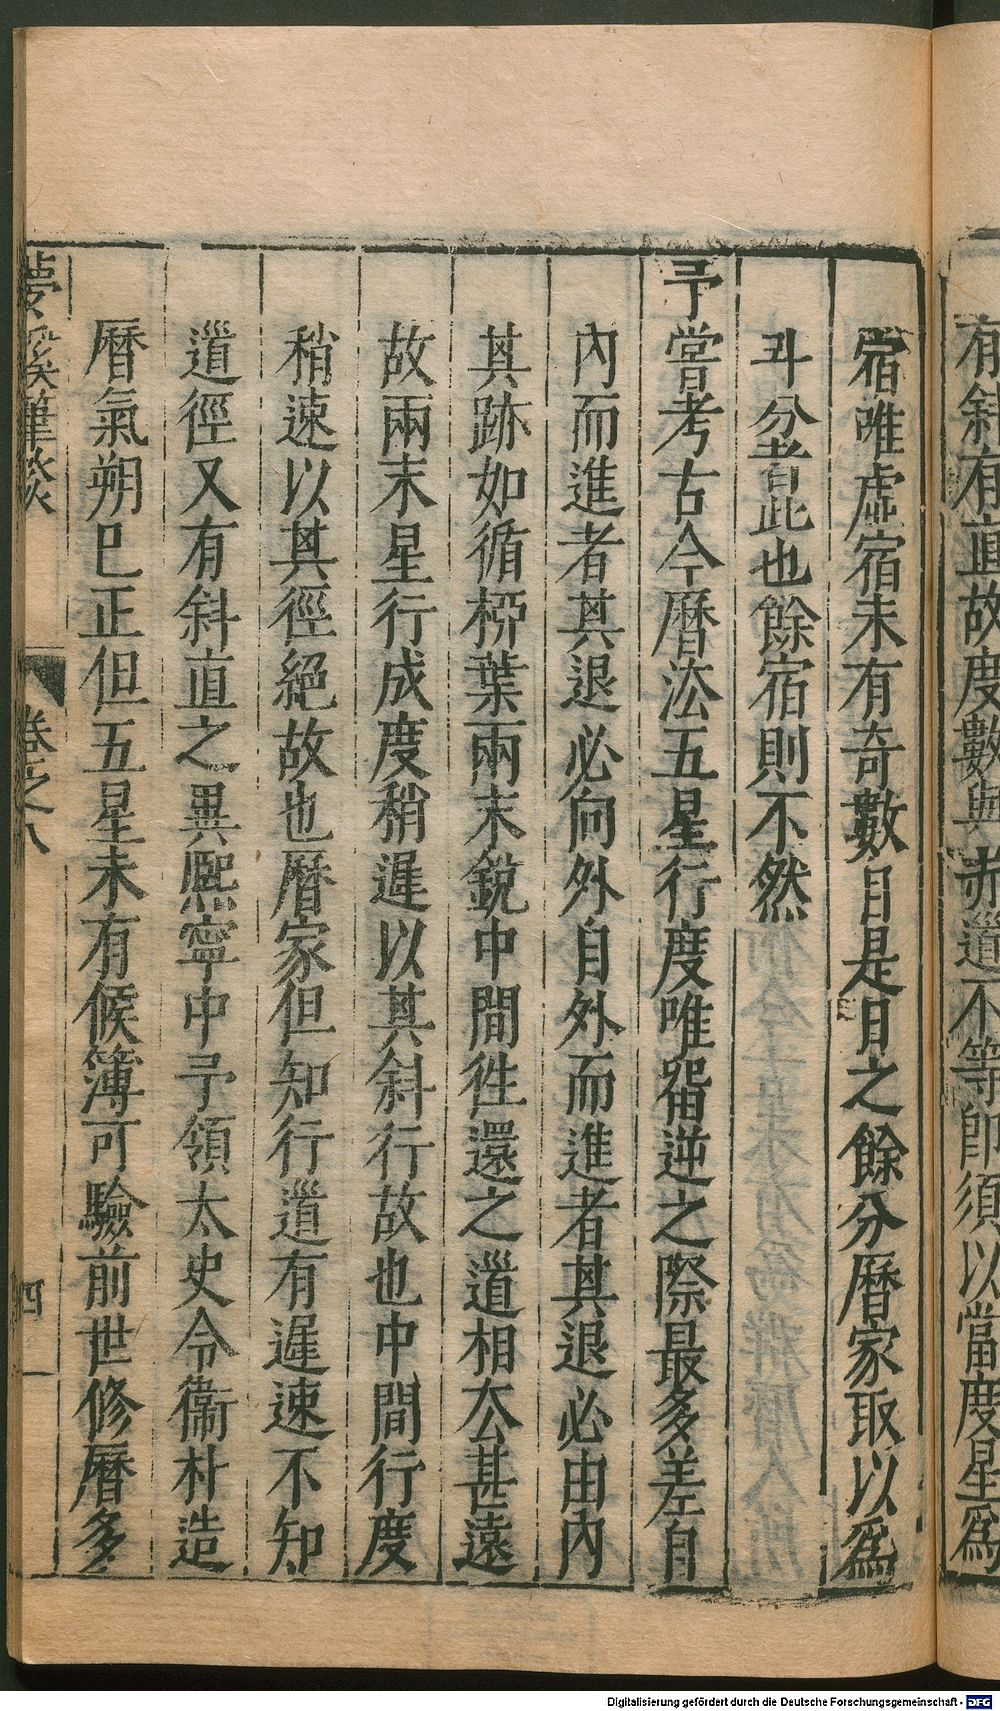 有斜有直故度數與赤道不等即須以當度星爲
宿唯虛宿未有奇數自是日之餘分曆家取以爲
斗分者此也餘宿則不然
予嘗考古今曆法五星行度唯留逆之際最多差自
內而進者其退必向外自外而進者其退必由內
其跡如循桺葉兩末銳中間徃還之道相去甚遠
故兩末星行成度稍遲以其斜行故也中間行度
稍速以其徑絕故也曆家但知行道有遲速不知
道徑又有斜直之異熙寧中予領太史令衞朴造
曆氣朔已正但五星未有候簿可驗前世修曆多
夢溪筆談 卷之八 四
Digitalisierung gefördert durch die Deutsche Forschungsgemeinschaft - DFG